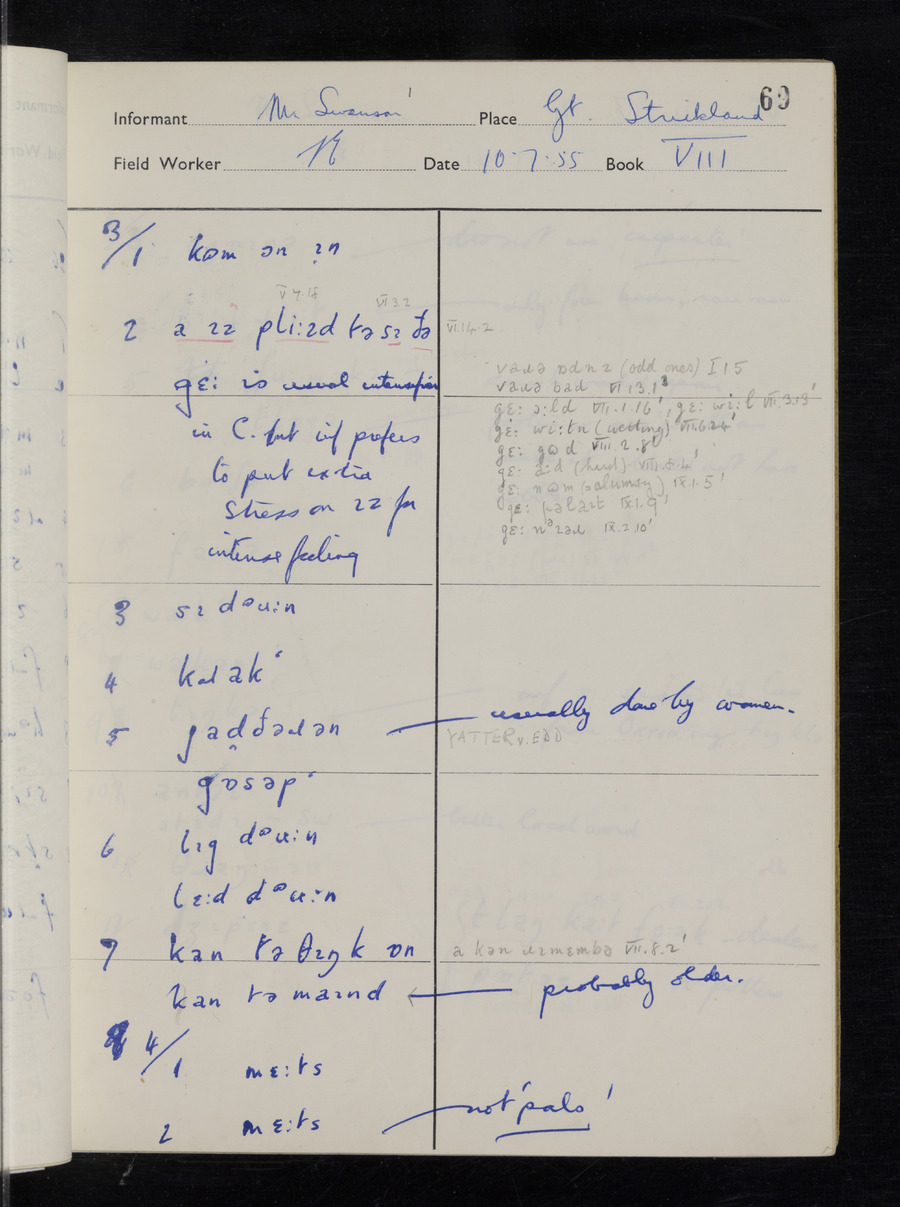 69
Informant Mr Swanson Place Gt. Strickland
Field Worker Date 10·7·55 Book VIII
3/1 kəm ən ɪn
V 7.18 VI 3.2
2 a ɪz pli:zd tə sɪ ðə VI.14.2
gɛ: is usual intensifier
in C. but inf prefers
to put extra
stress on ɪz for
intense feeling
vaɹə ɒdnz (odd ones) I 1 5
vaɹə bad VI 13.1
gɛ: ɔ:ld VII.1.16', gɛ: wi:l VII.3.13'
gɛ: wi:tn (wetting) VII.6.24'
gɛ: gʊd VIII.2.8'
gɛ: a:d (hard) VIII.8.4'
gɛ: IX.1.5'
gɛ: IX.1.9'
gɛ: IX.2.10'
3 sɪ dəu:n
4 kɹak'
5 jaddəɹən — usually done by women.
YATTER v. EDD
gɒsəp'
6 lɪg dəu:n
lɛ:d dəu:n
7 kan tə θɪŋk ɒn a kən ɹɪmɛmbə VII.8.2'
kan tə maɪnd ← probably older.
8 4/1 mɛ:ts
2 mɛ:ts — not 'pals'